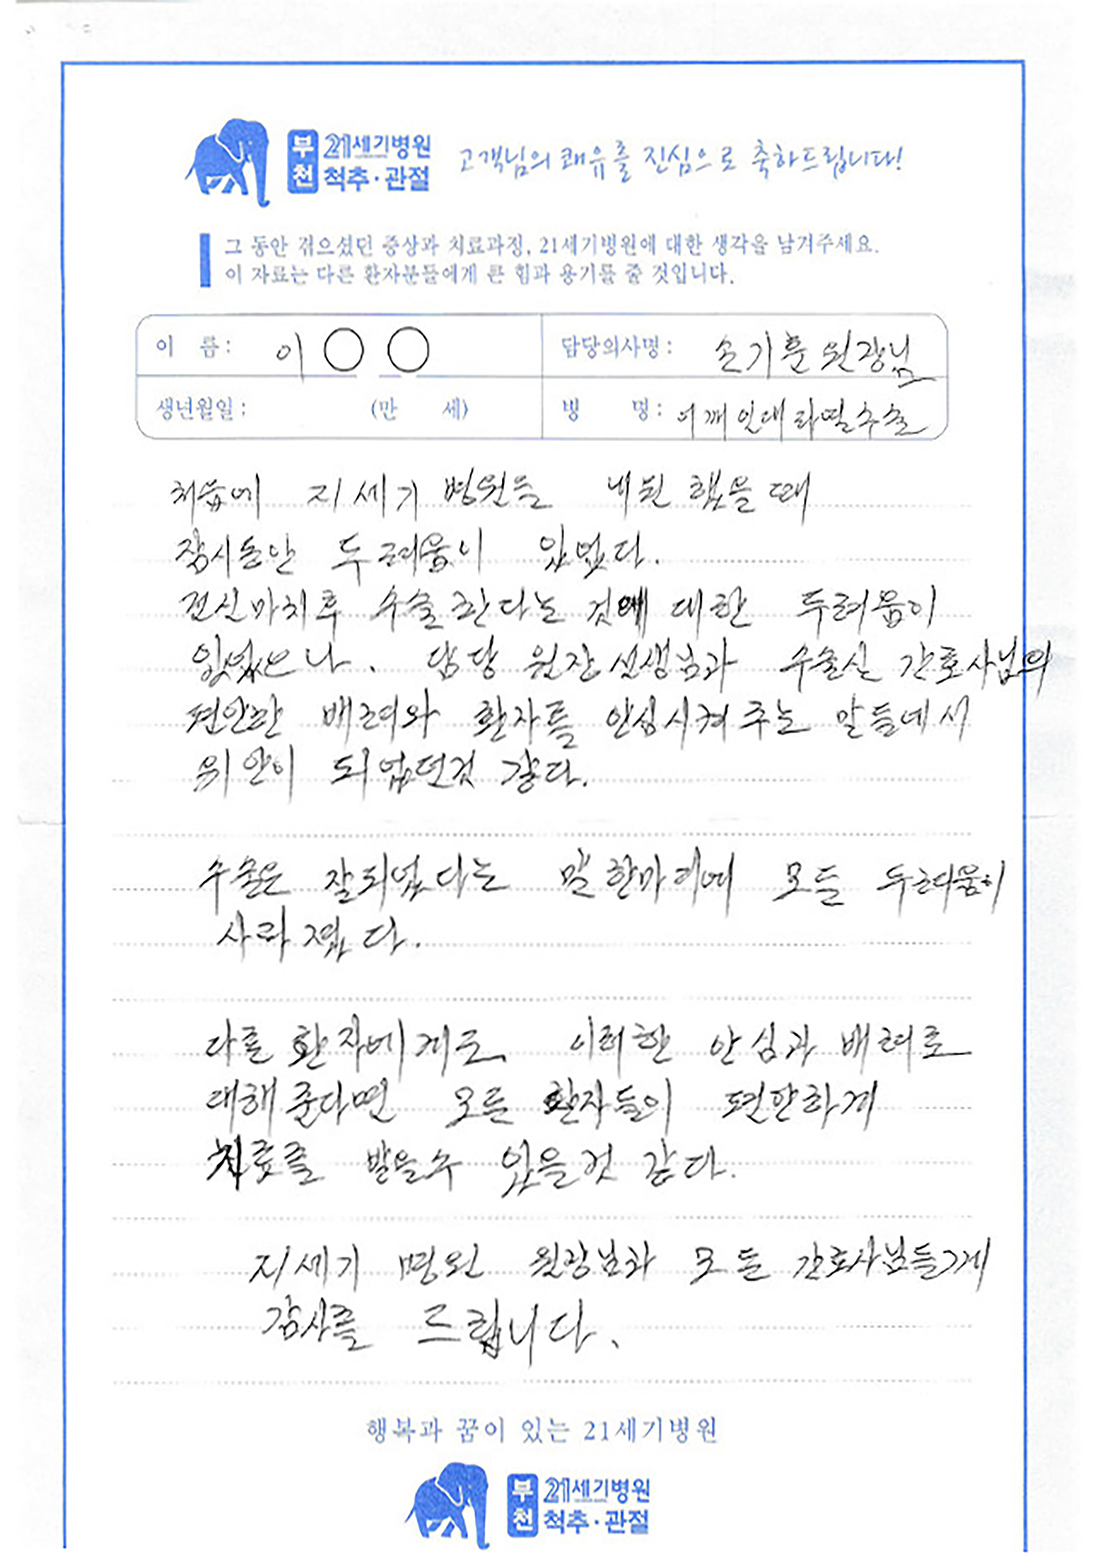 부천 21세기병원 척추·관절 고객님의 쾌유를 진심으로 축하드립니다!
그 동안 겪으셨던 증상과 치료과정, 21세기병원에 대한 생각을 남겨주세요.
이 자료는 다른 환자분들에게 큰 힘과 용기를 줄 것입니다.
이 름 : 이○○ 담당의사명 : 손기훈 원장님
생년월일 : (만 세) 병 명 : 어깨 인대 수술
처음에 21세기 병원을 내원 했을 때
잠시동안 두려움이 있었다.
전신마취후 수술한다는 것에 대한 두려움이
있었으나. 담당 원장선생님과 수술실 간호사님의
편안한 배려와 환자를 안심시켜 주는 말들에서
위안이 되었던것 같다.
수술은 잘되었다는 말 한마디에 모든 두려움이
사라졌다.
다른 환자에게도 이러한 안심과 배려로
대해준다면 모든 환자들이 편안하게
치료를 받을수 있을것 같다.
21세기 병원 원장님과 모든 간호사님들께
감사를 드립니다.
행복과 꿈이 있는 21세기병원
부천 21세기병원 척추·관절